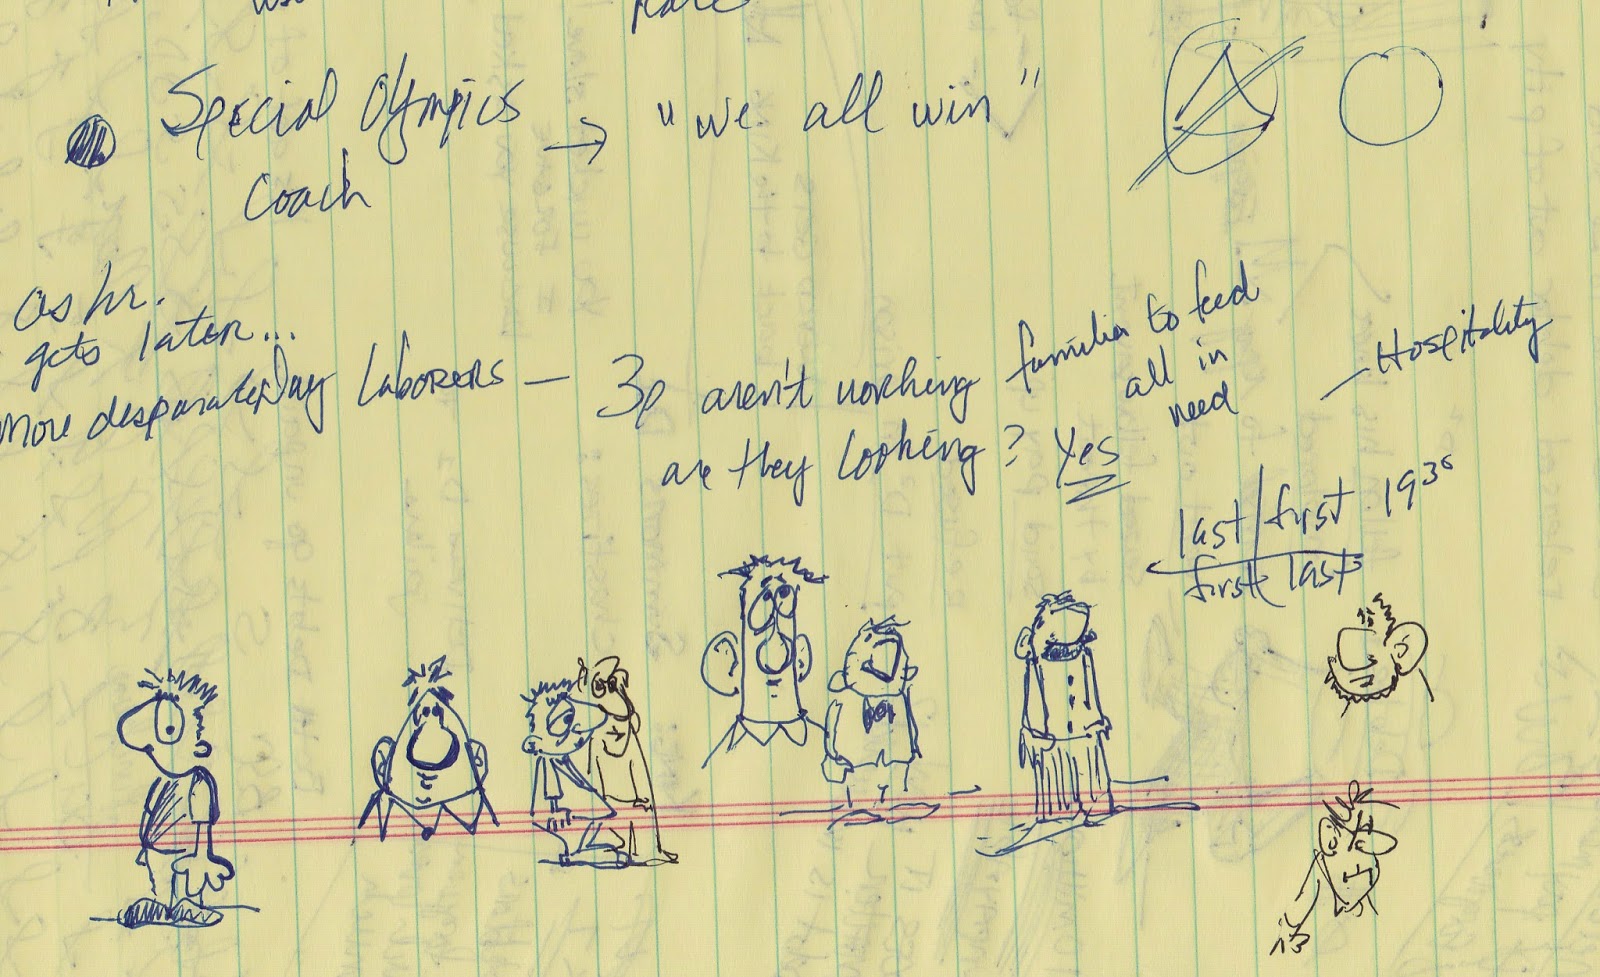 Special Olympics → "we all win"
Coach
as hr.
gets later...
More desparate Day Laborers — 3p aren't working
are they looking? Yes
families to feed
all in
need
— Hospitality
last/first 1930
first last